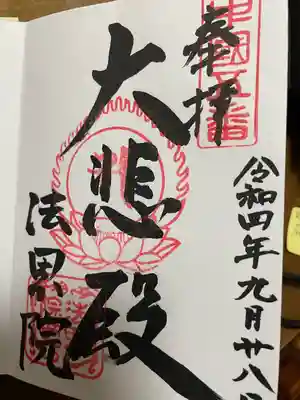 奉拝
令和四年九月廿八日
大悲殿
法界院